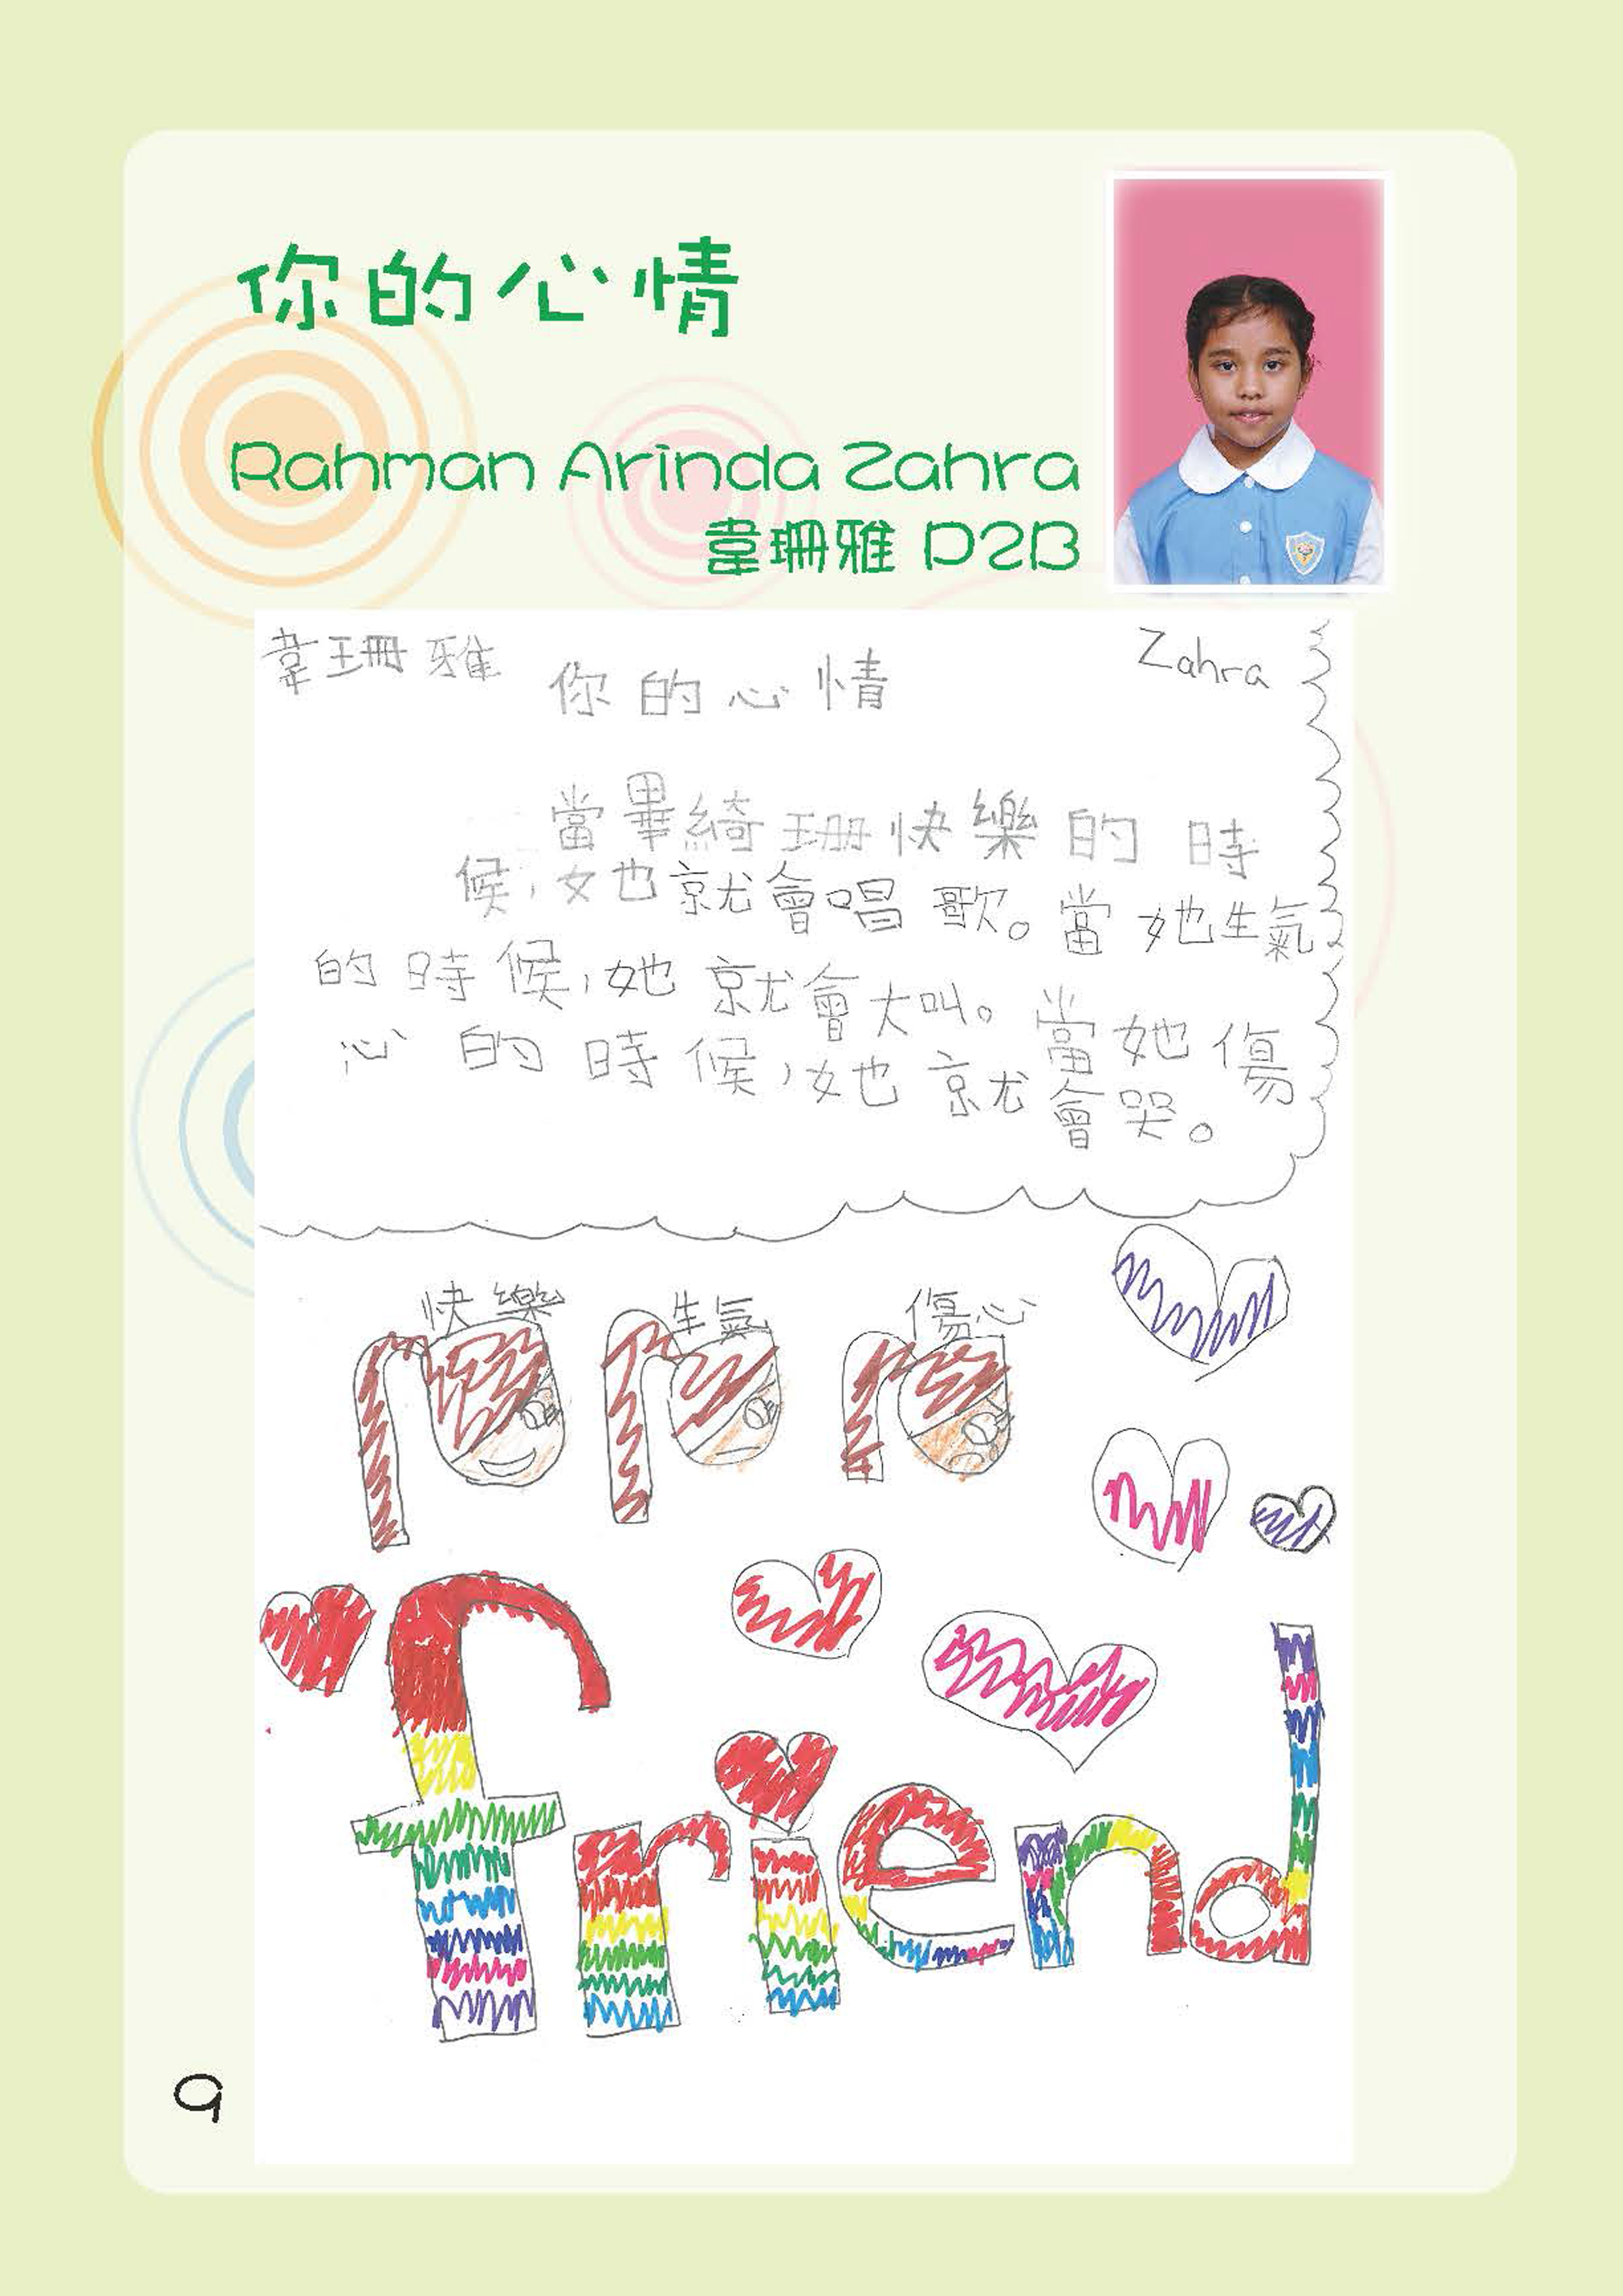 你的心情
Rahman Arinda Zahra
韋珊雅 P2B
韋珊雅
Zahra
你的心情
當畢綺珊快樂的時
候，她就會唱歌。當她生氣
的時候，她就會大叫。當她傷
心的時候，她就會哭。
快樂 生氣 傷心
friend
9